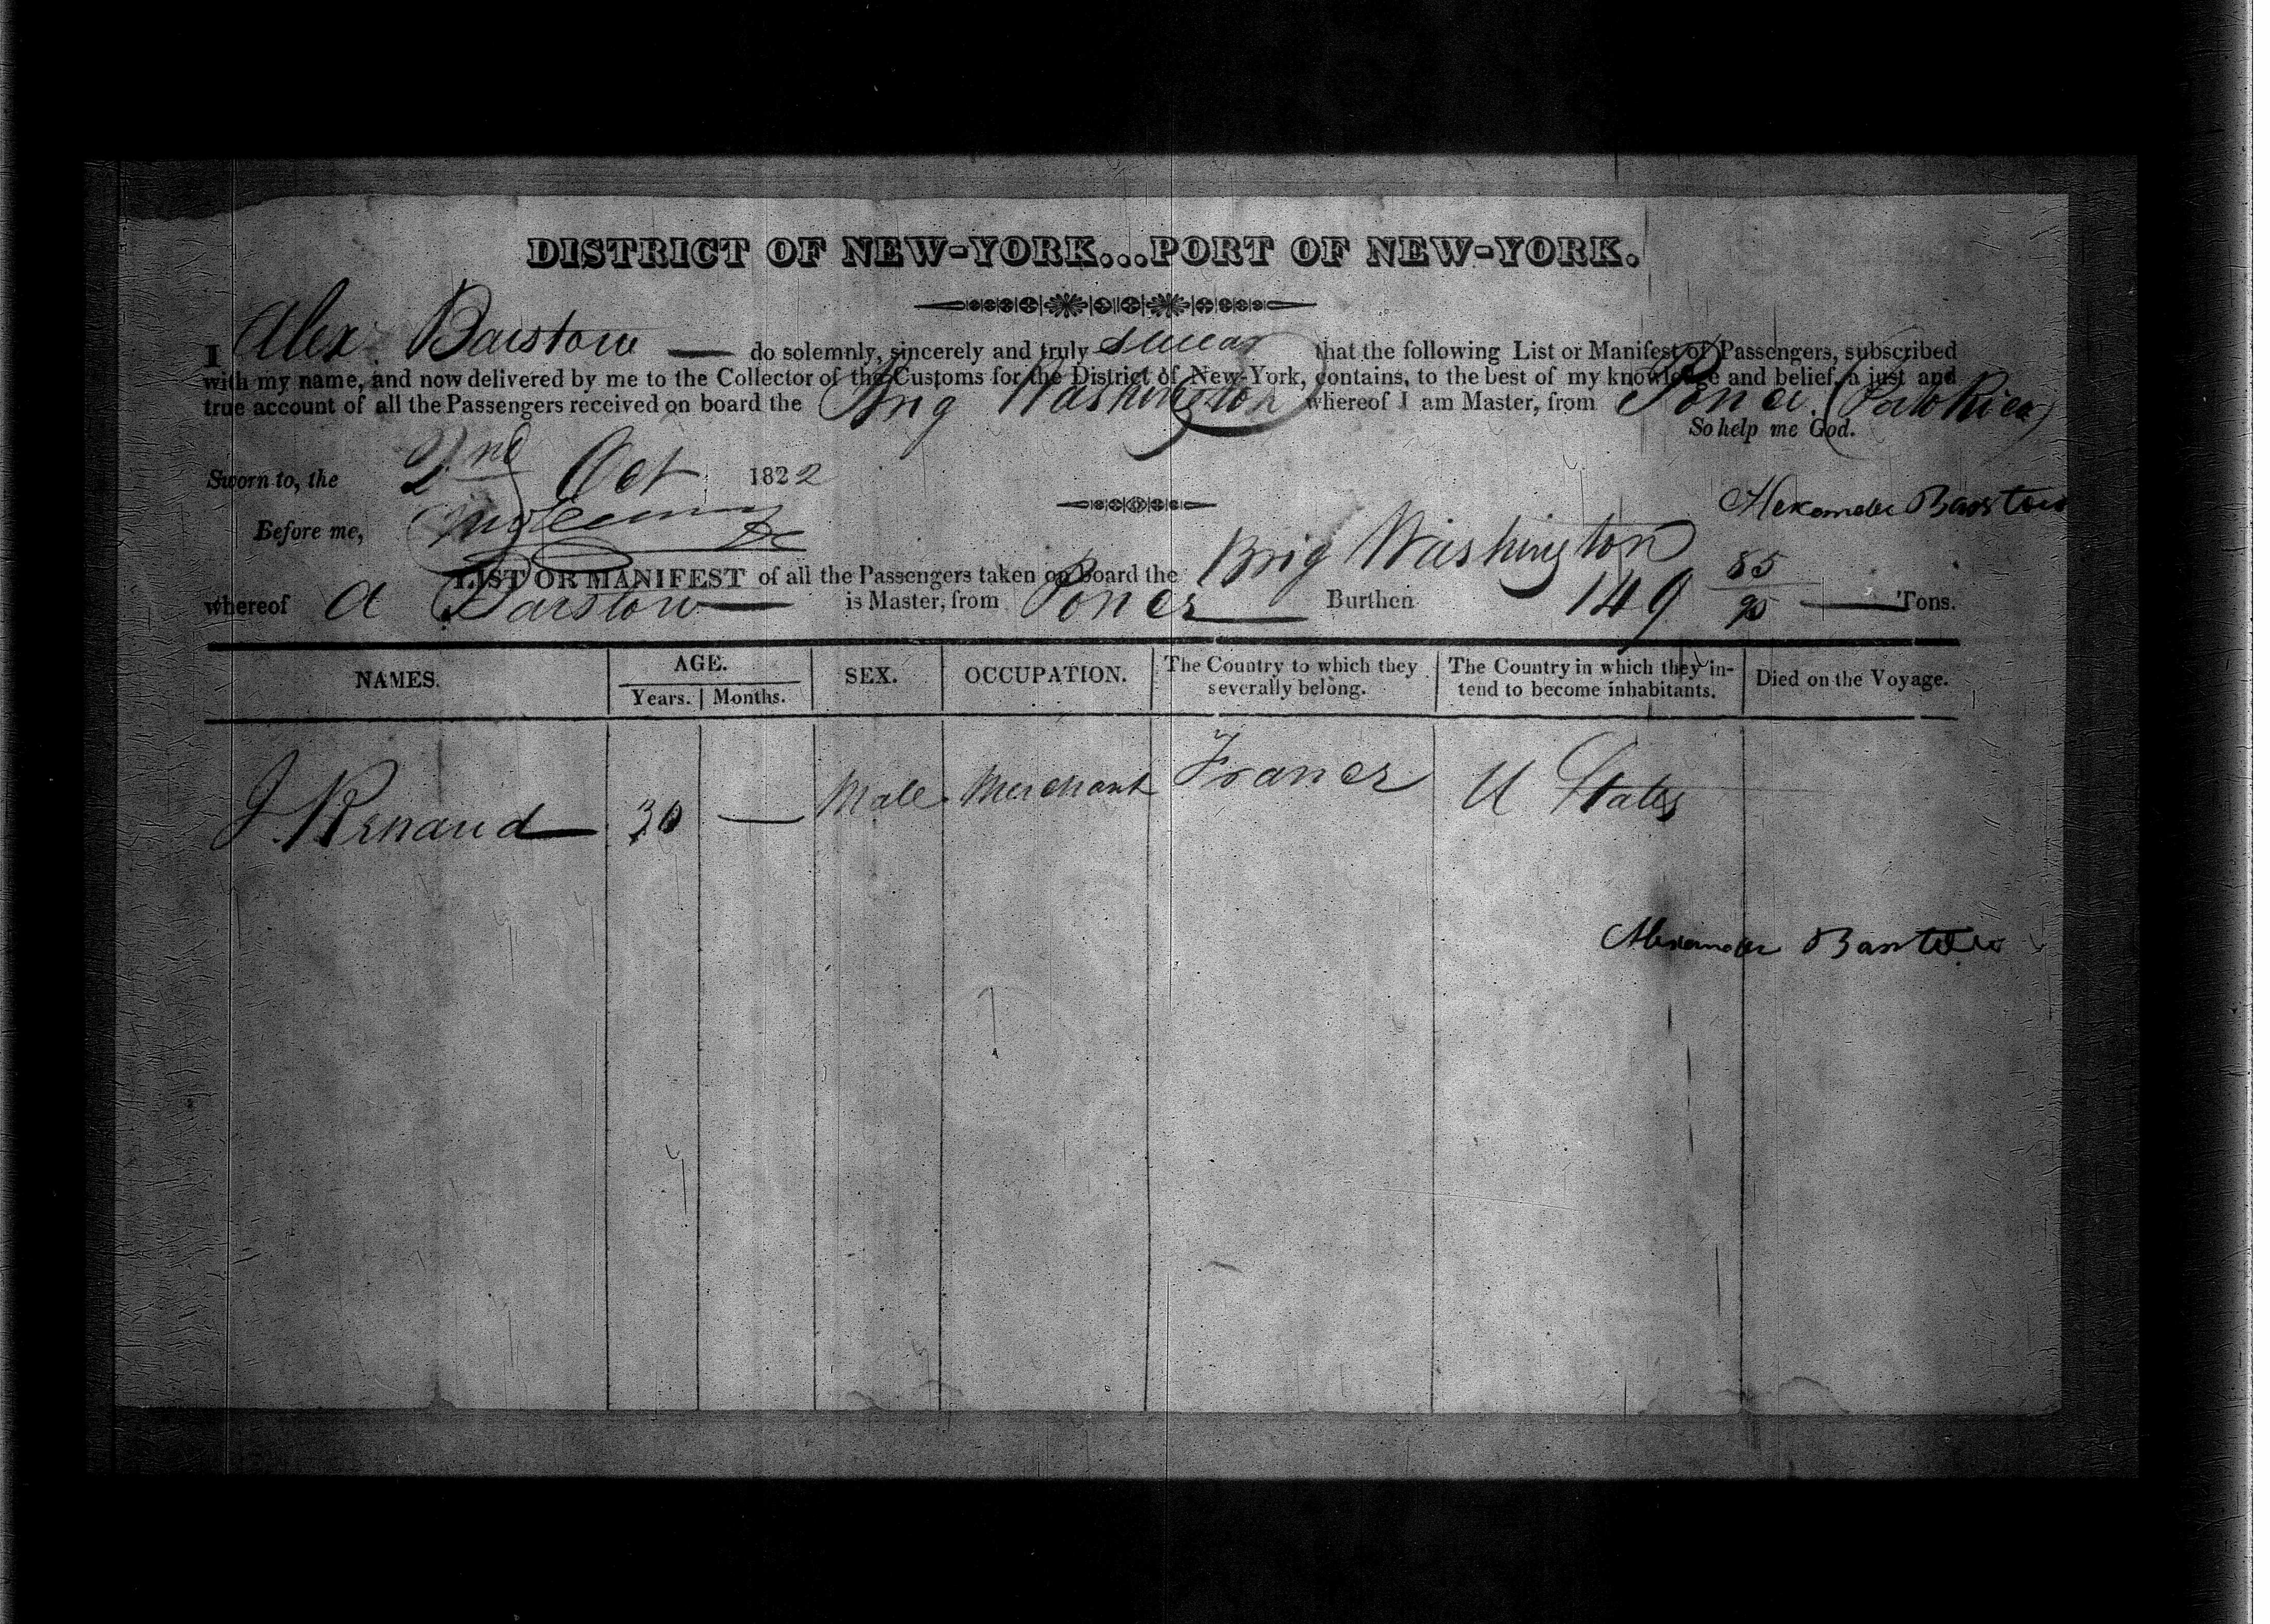 DISTRICT OF NEW-YORK...PORT OF NEW-YORK.
I Alex Barstow — do solemnly, sincerely and truly swear that the following List or Manifest of Passengers, subscribed
with my name, and now delivered by me to the Collector of the Customs for the District of New-York, contains, to the best of my knowledge and belief, a just and
true account of all the Passengers received on board the Brig Washington whereof I am Master, from Ponce (Porto Rico)
So help me God.
Sworn to, the 2nd Oct 1822
Alexander Barstow
Before me,
LIST OR MANIFEST of all the Passengers taken on board the Brig Washington
whereof A Barstow — is Master, from Ponce Burthen 149 85/95 — Tons.
NAMES. AGE. SEX. OCCUPATION. The Country to which they severally belong. The Country in which they intend to become inhabitants. Died on the Voyage.
Years. Months.
J. Renaud 30 — Male Merchant France U States
Alexander Barstow